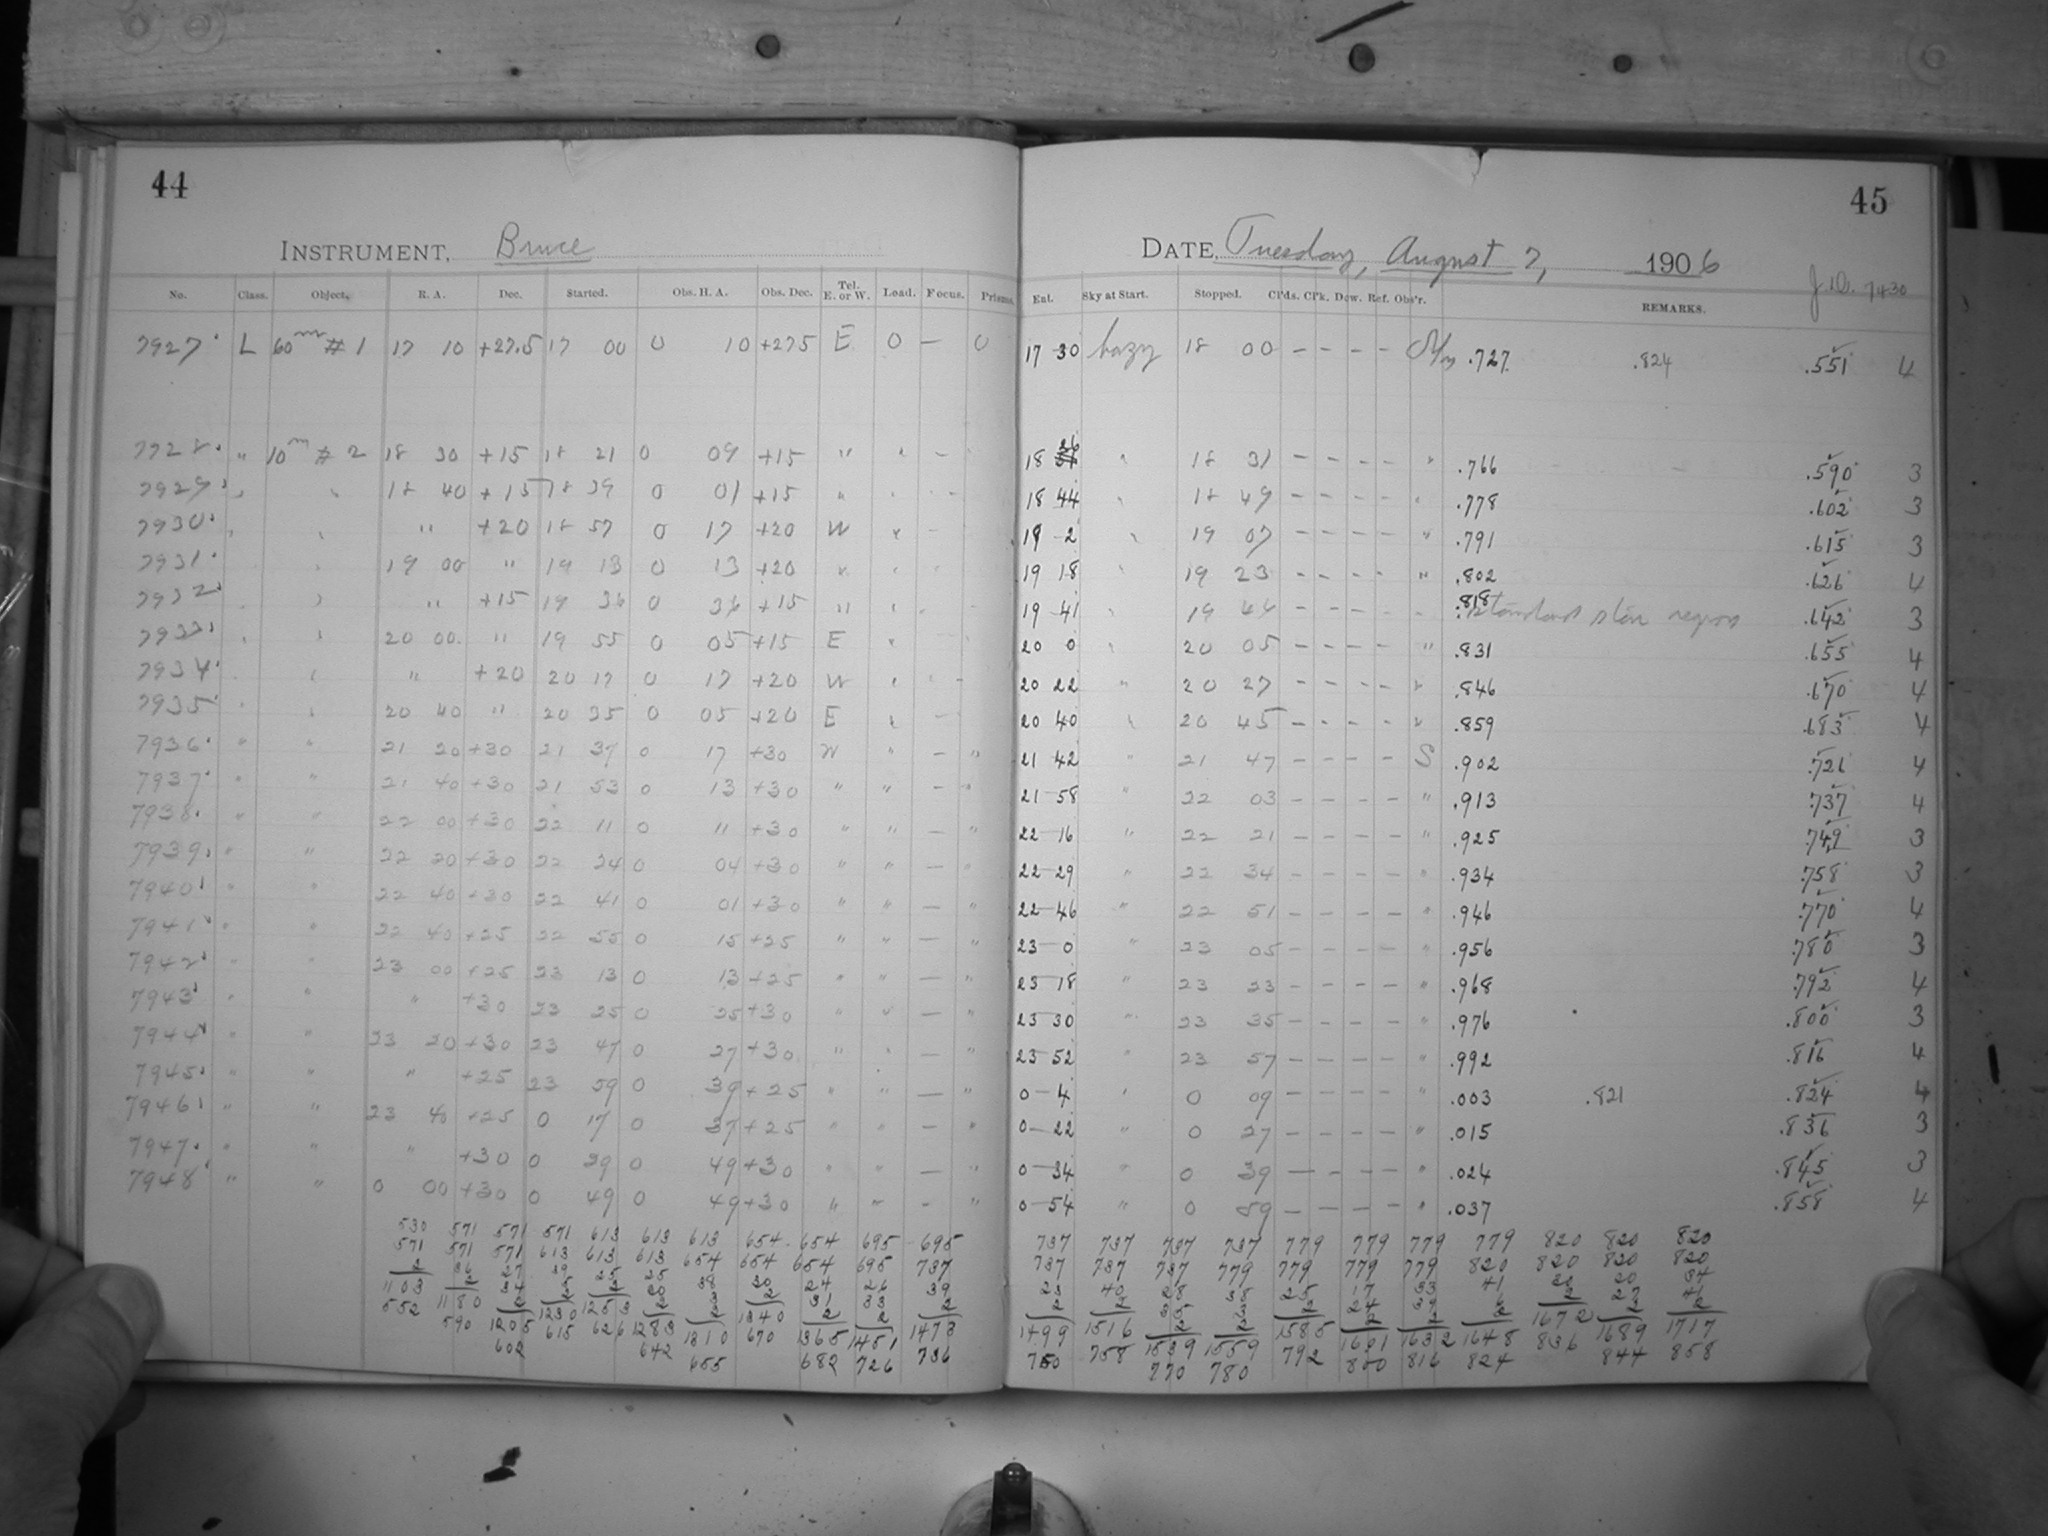 44
45
INSTRUMENT, Bruce
DATE, Tuesday, August 7, 1906
J.D. 7430
No. Class. Object. R. A. Dec. Started. Obs. H. A. Obs. Dec. Tel. E. or W. Load. Focus. Prisms. Eat. Sky at Start. Stopped. Cl'ds. Cl'k. Dew. Ref. Obs'r. REMARKS.
7927 L 60m # 1 17 10 +27.5 17 00 0 10 +275 E 0 — 0 17 30 hazy 18 00 – – – – .727 .824 .551 4
7928 " 10m # 2 18 30 +15 18 21 0 09 +15 " " – 18 26 " 18 31 – – – – " .766 .590 3
7929 " " 18 40 +15 18 39 0 01 +15 " " – 18 44 " 18 49 – – – – " .778 .602 3
7930 " " " +20 18 57 0 17 +20 W " – 19 2 " 19 07 – – – – " .791 .615 3
7931 " " 19 00 " 19 13 0 13 +20 " " 19 18 " 19 23 – – – – " .802 .626 4
7932 " " " +15 19 36 0 36 +15 " " – 19 41 " 19 46 – – – – .818 standard star region .642 3
7933 " " 20 00 " 19 55 0 05 +15 E " 20 0 " 20 05 – – – – " .831 .655 4
7934 " " +20 20 17 0 17 +20 W " – 20 22 " 20 27 – – – – " .846 .670 4
7935 " " 20 40 " 20 35 0 05 +20 E " – 20 40 " 20 45 – – – – " .859 .683 4
7936 " " 21 20 +30 21 37 0 17 +30 W " – " 21 42 " 21 47 – – – – S .902 .726 4
7937 " " 21 40 +30 21 53 0 13 +30 " " – " 21 58 " 22 03 – – – – " .913 .737 4
7938 " " 22 00 +30 22 11 0 11 +30 " " – " 22 16 " 22 21 – – – – " .925 .749 3
7939 " " 22 20 +30 22 24 0 04 +30 " " – " 22 29 " 22 34 – – – – " .934 .758 3
7940 " " 22 40 +30 22 41 0 01 +30 " " – " 22 46 " 22 51 – – – – " .946 .770 4
7941 " " 22 40 +25 22 55 0 15 +25 " " – " 23 0 " 23 05 – – – – " .956 .780 3
7942 " " 23 00 +25 23 13 0 13 +25 " " – " 23 18 " 23 23 – – – – " .968 .792 4
7943 " " " +30 23 25 0 25 +30 " " – " 23 30 " 23 35 – – – – " .976 .800 3
7944 " " 23 20 +30 23 47 0 27 +30 " " – " 23 52 " 23 57 – – – – " .992 .816 4
7945 " " " +25 23 59 0 39 +25 " " – " 0 4 " 0 09 – – – – " .003 .821 .824 4
7946 " " 23 40 +25 0 17 0 37 +25 " " – " 0 22 " 0 27 – – – – " .015 .836 3
7947 " " " +30 0 29 0 49 +30 " " – " 0 34 " 0 39 – – – – " .024 .845 3
7948 " " 0 00 +30 0 49 0 49 +30 " " – " 0 54 " 0 59 – – – – " .037 .858 4
530 571 571 571 613 613 613 654 654 695 695 737 737 737 737 779 779 779 779 820 820 820
571 571 571 613 613 613 654 654 654 695 737 737 737 737 779 779 779 779 820 820 820 820
1103 1180 1205 1230 1253 1283 1310 1340 1365 1451 1473 1499 1516 1539 1559 1585 1601 1632 1648 1672 1689 1717
552 590 602 615 626 642 655 670 682 726 736 750 758 770 780 792 800 816 824 836 844 858